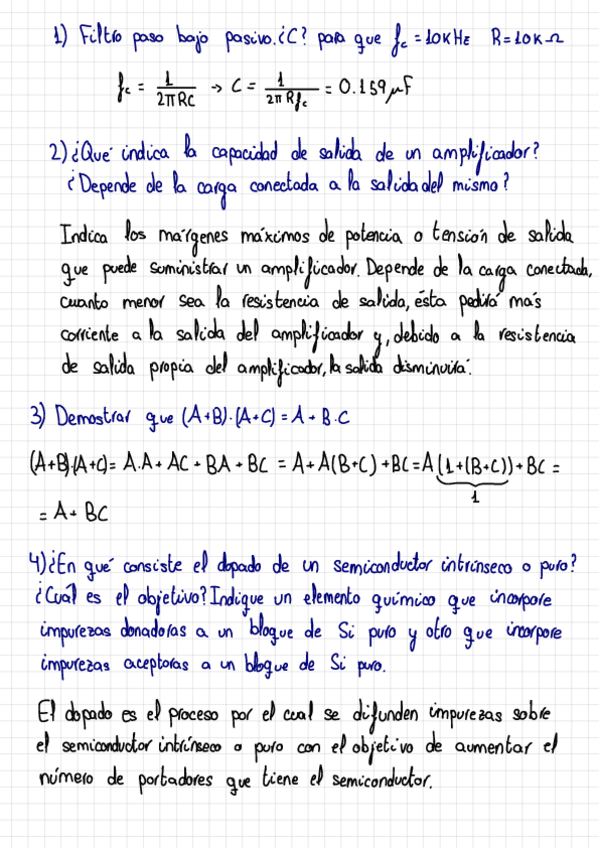 1) Filtro paso bajo pasivo. ¿C? para que fc = 10KHz R = 10K Ω
fc = 1/(2π RC) → C = 1/(2π R fc) = 0.159 μF
2) ¿Qué indica la capacidad de salida de un amplificador?
¿Depende de la carga conectada a la salida del mismo?
Indica los márgenes máximos de potencia o tensión de salida
que puede suministrar un amplificador. Depende de la carga conectada,
cuanto menor sea la resistencia de salida, ésta pedirá más
corriente a la salida del amplificador y, debido a la resistencia
de salida propia del amplificador, la salida disminuirá.
3) Demostrar que (A+B)·(A+C) = A + B·C
(A+B)·(A+C) = A·A + AC + BA + BC = A + A(B+C) + BC = A(1+(B+C)) + BC =
1
= A + BC
4) ¿En qué consiste el dopado de un semiconductor intrínseco o puro?
¿Cuál es el objetivo? Indique un elemento químico que incorpore
impurezas donadoras a un bloque de Si puro y otro que incorpore
impurezas aceptoras a un bloque de Si puro.
El dopado es el proceso por el cual se difunden impurezas sobre
el semiconductor intrínseco o puro con el objetivo de aumentar el
número de portadores que tiene el semiconductor.